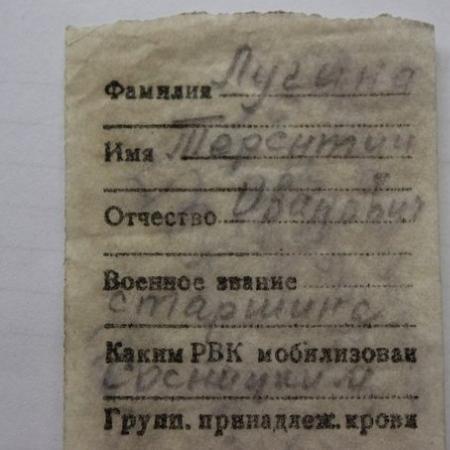 Фамилия Лугина
Имя Терентий
Отчество Иванович
Военное звание
старшина
Каким РВК мобилизован
Сосницким
Групп. принадлеж. крови